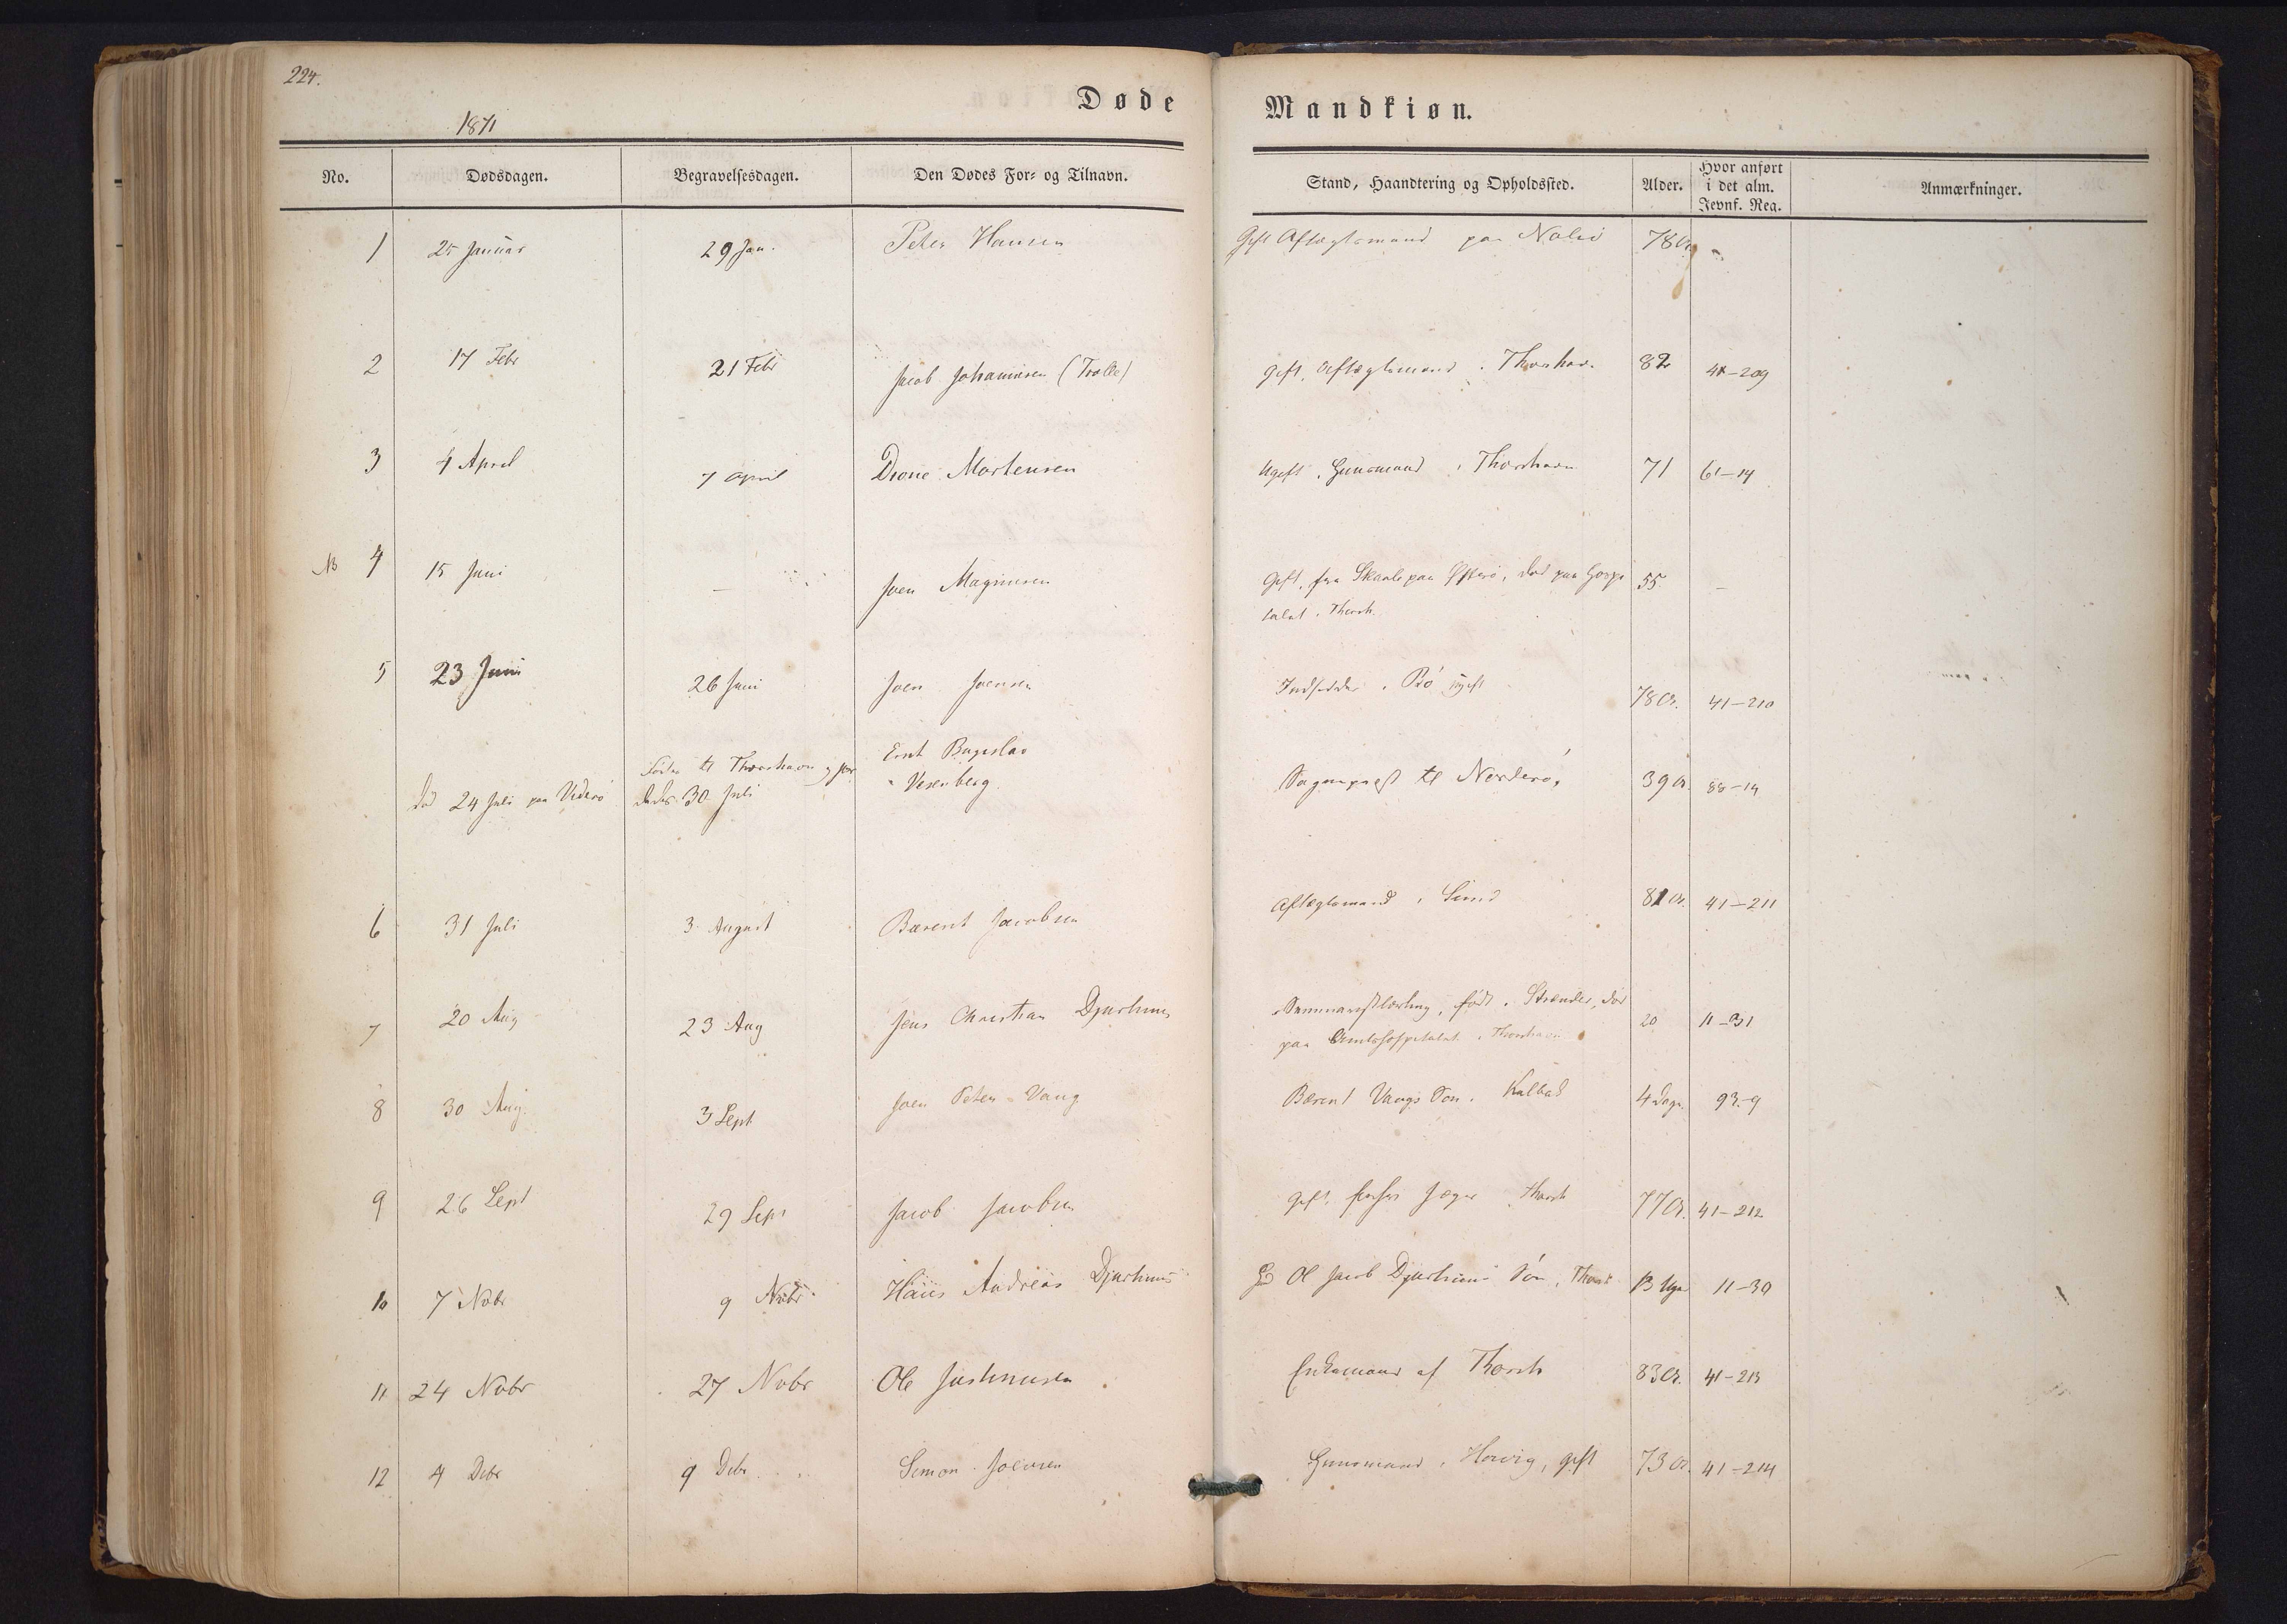 224.
Døde Mandkiøn.
1871
No. Dødsdagen. Begravelsesdagen. Den Dødes For- og Tilnavn. Stand, Haandtering og Opholdssted. Alder. Hvor anført i det alm. Jevnf. Reg. Anmærkninger.
1 25 Januar 29 Jan. Peter Hansen Gift Aftægtsmand paa Nolsö 78 Ar
2 17 Febr 21 Febr Jacob Johannesen (Trolle) gift. Aftægtsmand i Thorshavn 82 41-209
3 4 April 7 April Dione Mortensen Ugift. Huusmand i Thorshavn 71 61-14
NB 4 15 Juni - Joen Magnusen Gift. fra Skaale paa Østerö, död paa Hospi 55 -
talet i Thorsh.
5 23 Juni 26 Juni Joen Joensen Indsidder i Bö ugift 78 Ar. 41-210
död 24 Juli paa Viderö Förtes til Thorshavn og jor Ernt Bugislav
dedes 30 Juli Vesenberg Sognepræst til Norderö, 39 A. 88-14
6 31 Juli 3 August Barent Jacobsen Aftægtsmand i Sund 81 Ar. 41-211
7 20 Aug 23 Aug Jens Christian Djurhuus Seminaristlærling, född i Strænder, död 20 11-31
paa Amtshospitalet i Thorshavn
8 30 Aug. 3 Sept Joen Peter Vang Barent Vangs Sön i Kalbak 4 Dage. 93-9
9 26 Sept 29 Sept Jacob Jacobsen gift, forhv Jæger i Thorsh 77 Ar. 41-212
10 7 Nobr 9 Nobr. Hans Andreas Djurhuus Ol Jacob Djurhuus Sön, Thorsh 13 Uger 11-30
11 24 Nobr 27 Nobr Ole Justinusen Enkemand af Thorsh 83 Ar. 41-213
12 4 Debr 9 Debr. Simon Joensen Huusmand i Hoivig, gift 73 Ar. 41-214